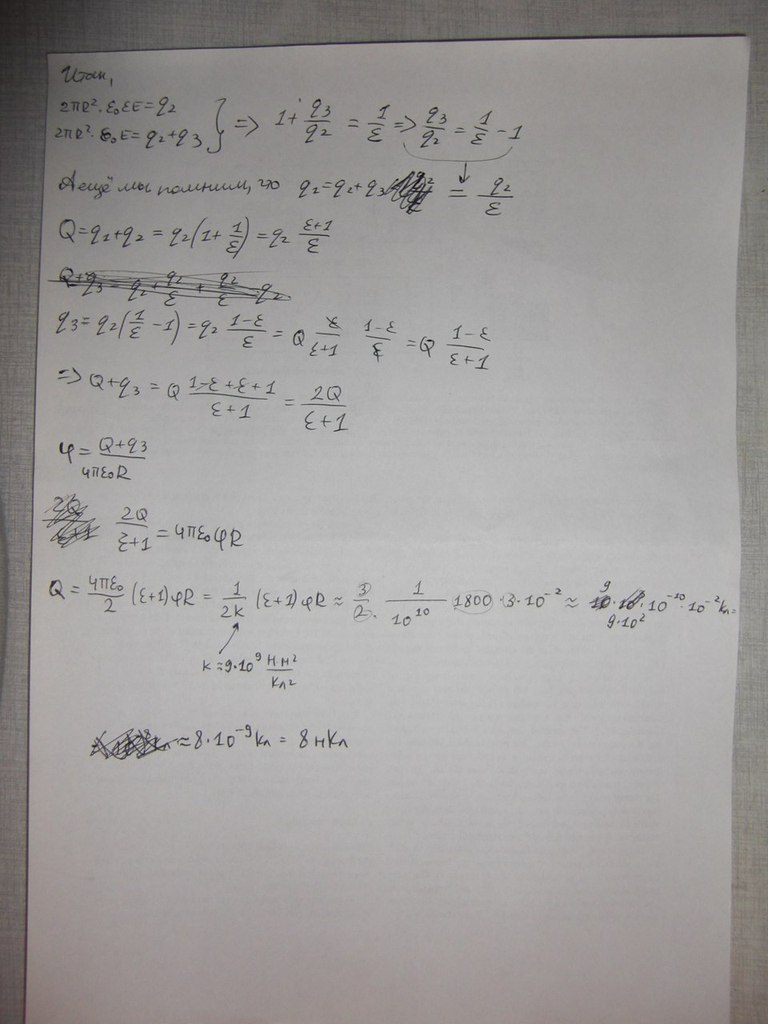 Итак,
2πR²·ε₀εE=q₂
2πR²·ε₀E=q₂+q₃ } => 1+ q₃/q₂ = 1/ε => q₃/q₂ = 1/ε - 1
А ещё мы помним, что q₂=q₂+q₃ = q₂/ε
Q=q₁+q₂ = q₂(1+ 1/ε) = q₂ (ε+1)/ε
q₃= q₂(1/ε -1) = q₂ (1-ε)/ε = Q ε/(ε+1) (1-ε)/ε = Q (1-ε)/(ε+1)
=> Q+q₃ = Q (1-ε+ε+1)/(ε+1) = 2Q/(ε+1)
φ= (Q+q₃)/(4πε₀R)
2Q/(ε+1) = 4πε₀φR
Q = 4πε₀/2 (ε+1)φR = 1/2k (ε+1)φR ≈ 3/2 · 1/10¹⁰ 1800·3·10⁻² ≈ 9·10²·10⁻¹⁰·10⁻² Кл=
k≈9·10⁹ Н·м²/Кл²
≈8·10⁻⁹Кл = 8 нКл